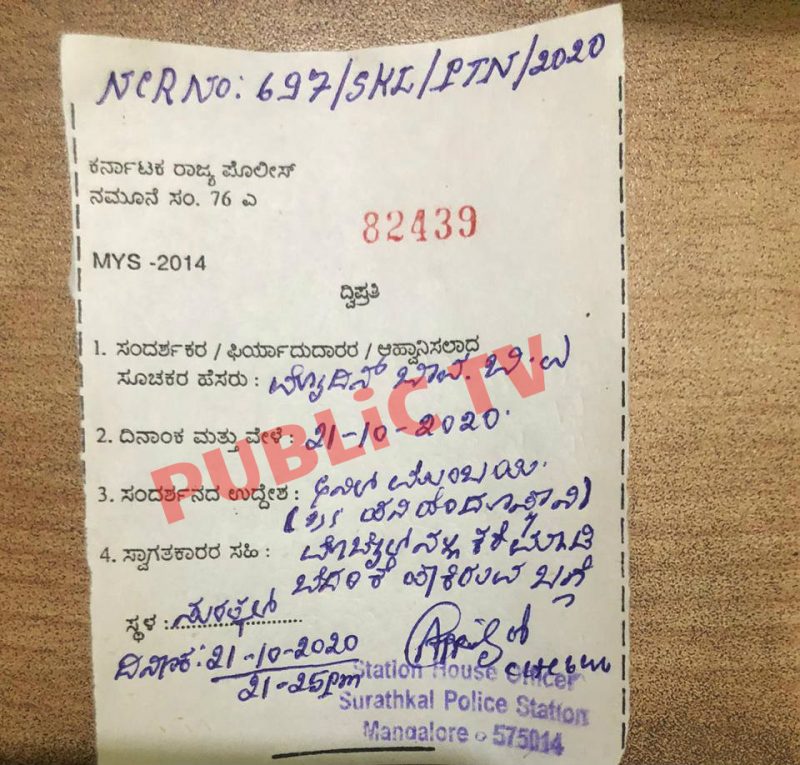 NCR No: 697/SKL/PTN/2020
ಕರ್ನಾಟಕ ರಾಜ್ಯ ಪೊಲೀಸ್
ನಮೂನೆ ಸಂ. 76 ಎ
82439
MYS -2014
ದ್ವಿಪ್ರತಿ
1. ಸಂದರ್ಶಕರ / ಫಿರ್ಯಾದುದಾರರ / ಆಹ್ವಾನಿಸಲಾದ
ಸೂಚಕರ ಹೆಸರು : ಮೊಯ್ದಿನ್ ಬಾವ. ಬಿ. ಎ
2. ದಿನಾಂಕ ಮತ್ತು ವೇಳೆ : 21-10-2020.
PUBLiC TV
3. ಸಂದರ್ಶನದ ಉದ್ದೇಶ :
4. ಸ್ವಾಗತಕಾರರ ಸಹಿ : ಮೊಬೈಲ್ ನಲ್ಲಿ ಕರೆ ಮಾಡಿ
ಬೆದರಿಕೆ ಹಾಕಿರುವ ಬಗ್ಗೆ
ಸ್ಥಳ : ಸುರತ್ಕಲ್
ದಿನಾಂಕ: 21-10-2020
21-25pm
Station House Officer
Surathkal Police Station
Mangalore - 575014